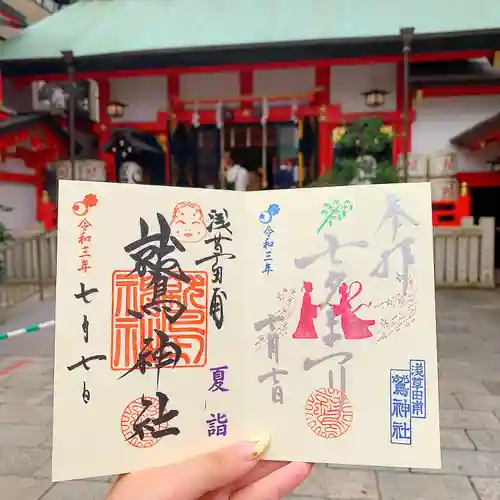 奉拝
七夕まつり
令和三年
七月七日
浅草田甫
鷲神社
浅草田甫
鷲神社
夏詣
令和三年
七月七日